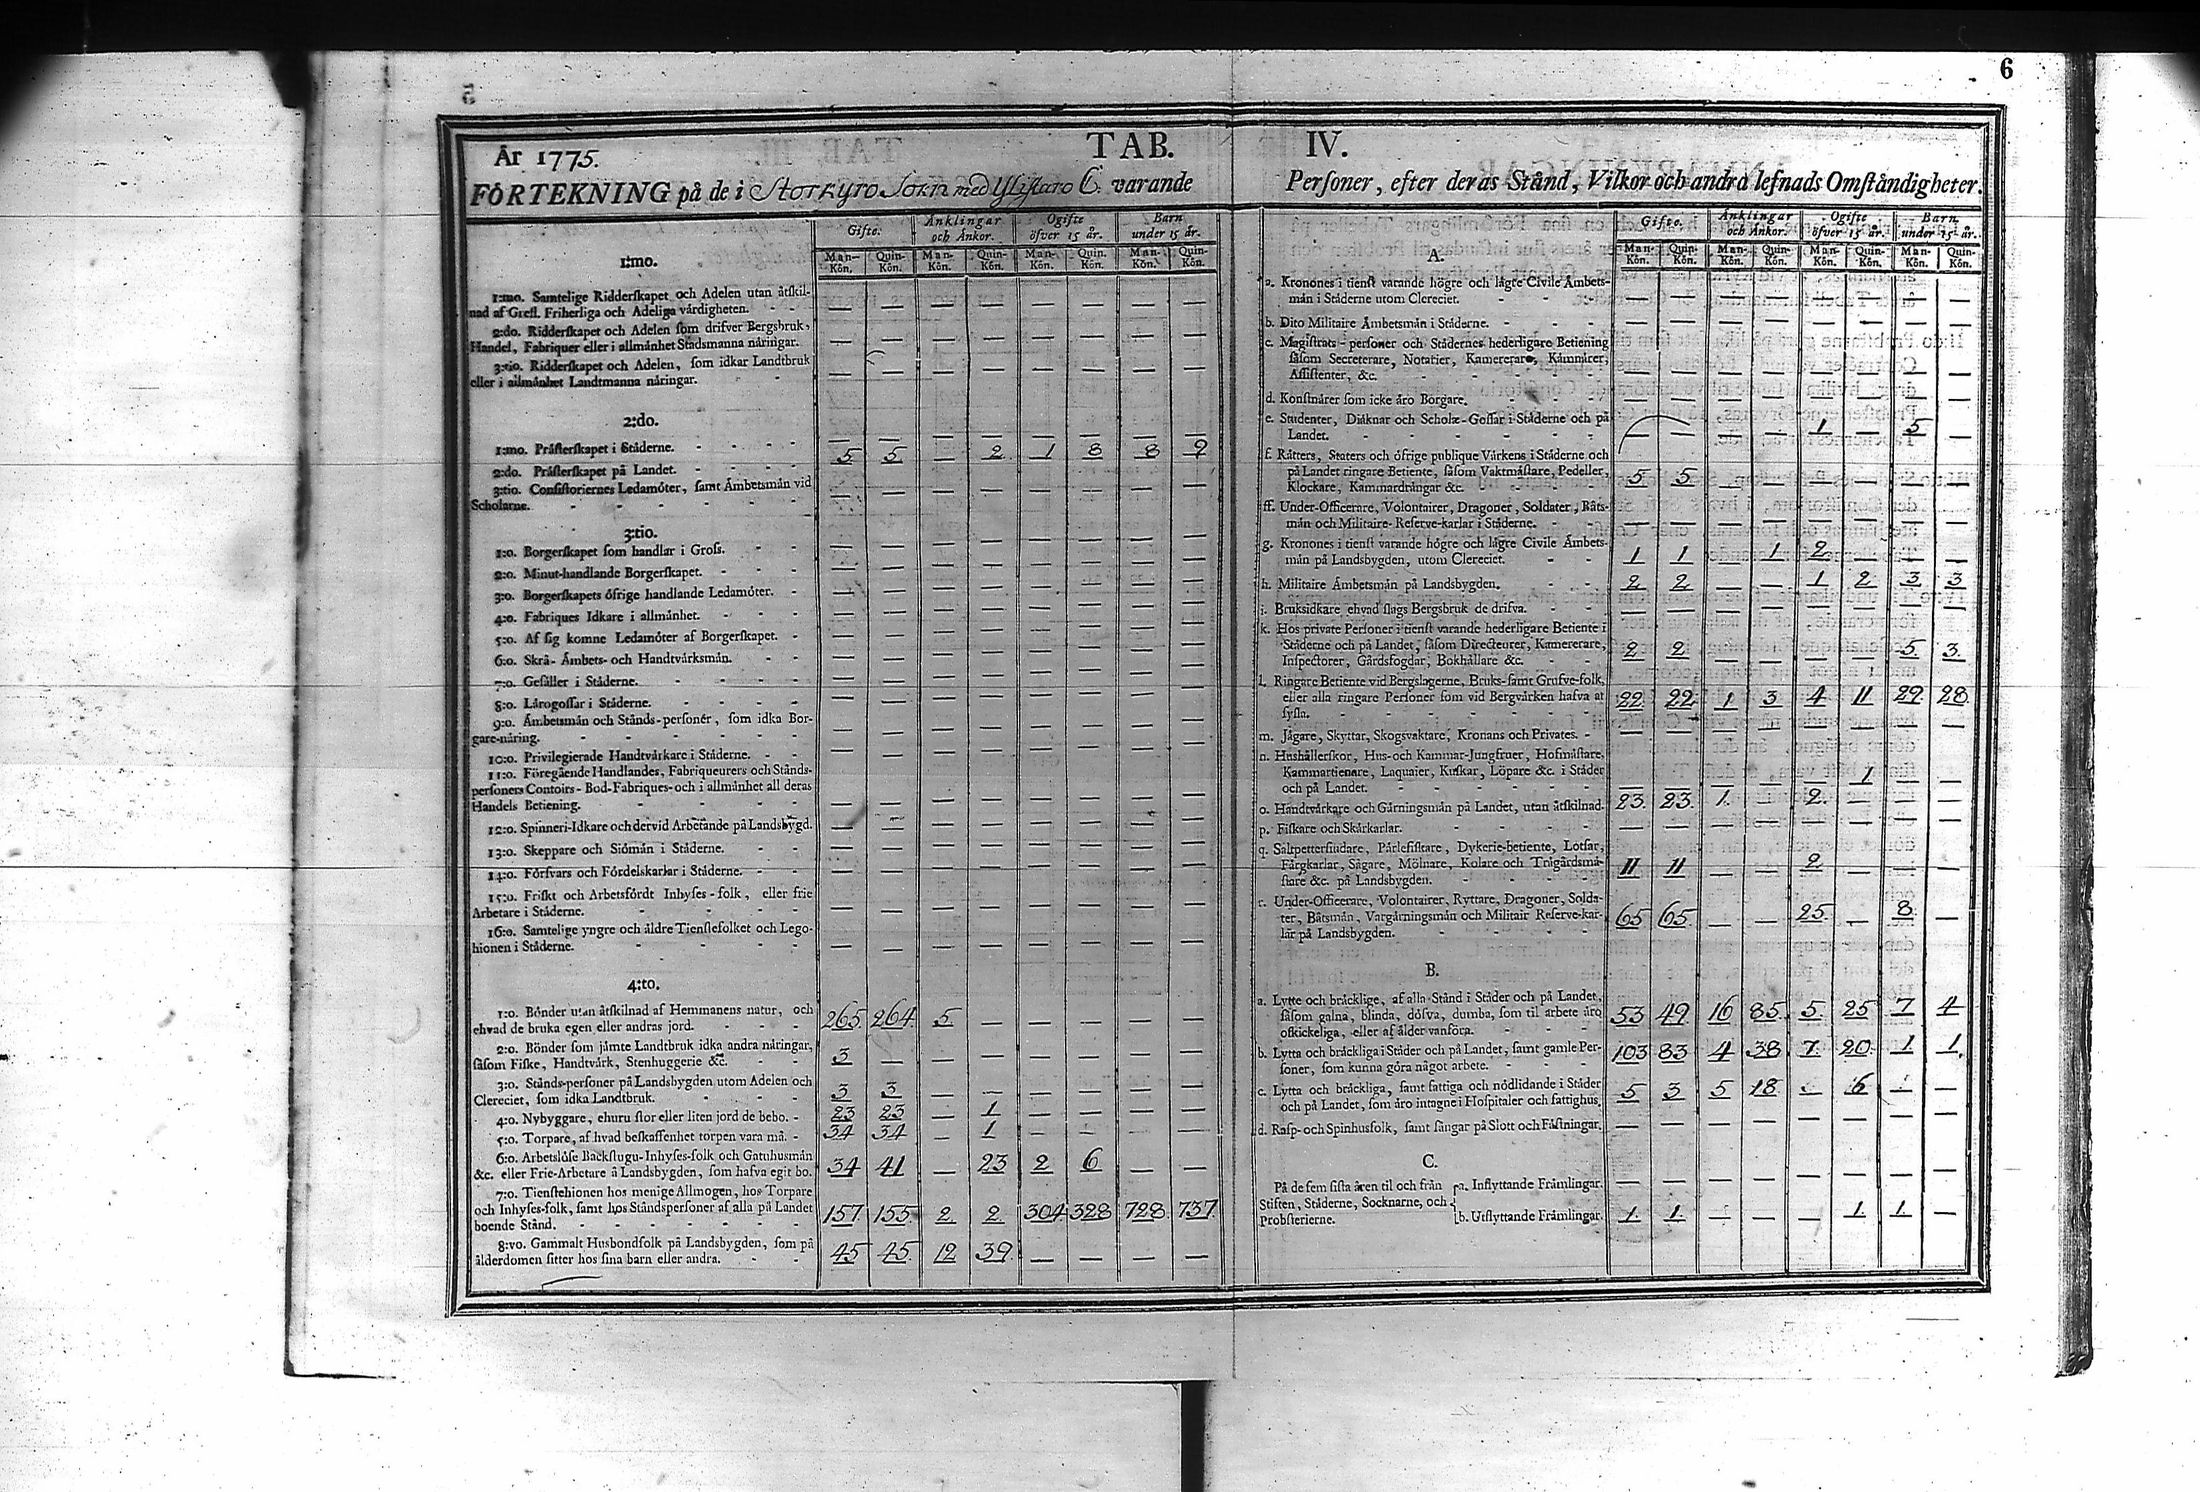 6
År 1775.
TAB. IV.
FÖRTEKNING på de i Storkyro Sokn med Ylistaro C. varande Personer, efter deras Stånd, Vilkor och andra lefnads Omståndigheter.
Gifte. Änklingar och Änkor. Ogifte öfver 15 år. Barn under 15 år.
Man-Kön. Quin-Kön. Man-Kön. Quin-Kön. Man-Kön. Quin-Kön. Man-Kön. Quin-Kön.
1:mo.
1:mo. Samtelige Ridderskapet och Adelen utan åtskil-
nad af Grefl. Friherliga och Adeliga värdigheten. — — — — — — — —
2:do. Ridderskapet och Adelen som drifver Bergsbruk,
Handel, Fabriquer eller i allmänhet Stadsmanna näringar. — — — — — — — —
3:tio. Ridderskapet och Adelen, som idkar Landtbruk
eller i allmänhet Landtmanna näringar. — — — — — — — —
2:do.
1:mo. Prästerskapet i Städerne. — — — — — — — —
2:do. Prästerskapet på Landet. 5 5 — 2 1 8 8 9
3:tio. Consistoriernes Ledamöter, samt Ämbetsmän vid
Scholarne. — — — — — — — —
3:tio.
1:o. Borgerskapet som handlar i Gross. — — — — — — — —
2:o. Minut-handlande Borgerskapet. — — — — — — — —
3:o. Borgerskapets öfrige handlande Ledamöter. — — — — — — — —
4:o. Fabriques Idkare i allmänhet. — — — — — — — —
5:o. Af sig komne Ledamöter af Borgerskapet. — — — — — — — —
6:o. Skrå-Ämbets-och Handtvärksmän. — — — — — — — —
7:o. Gesäller i Städerne. — — — — — — — —
8:o. Lärogossar i Städerne. — — — — — — — —
9:o. Ämbetsmän och Stånds-personer, som idka Bor-
gare-näring. — — — — — — — —
10:o. Privilegierade Handtvärkare i Städerne. — — — — — — — —
11:o. Föregående Handlandes, Fabriqueurers och Stånds-
personers Contoirs-Bod-Fabriques-och i allmänhet all deras
Handels Betiening. — — — — — — — —
12:o. Spinneri-Idkare och dervid Arbetande på Landsbygd. — — — — — — — —
13:o. Skeppare och Siömän i Städerne. — — — — — — — —
14:o. Försvars och Fördelskarlar i Städerne. — — — — — — — —
15:o. Friskt och Arbetsfördt Inhyses-folk, eller frie
Arbetare i Städerne. — — — — — — — —
16:o. Samtelige yngre och äldre Tienstefolket och Lego-
hionen i Städerne. — — — — — — — —
4:to.
1:o. Bönder utan åtskilnad af Hemmanens natur, och
ehvad de bruka egen eller andras jord. 265 264 5 — — — — —
2:o. Bönder som jämte Landtbruk idka andra näringar,
såsom Fiske, Handtvärk, Stenhuggerie &c. 3 — — — — — — —
3:o. Stånds-personer på Landsbygden utom Adelen och
Clereciet, som idka Landtbruk. 3 3 — — — — — —
4:o. Nybyggare, ehuru stor eller liten jord de bebo. 23 23 — 1 — — — —
5:o. Torpare, af hvad beskaffenhet torpen vara må. 34 34 — 1 — — — —
6:o. Arbetslöse Backstugu-Inhyses-folk och Gatuhusmän
&c. eller Frie-Arbetare å Landsbygden, som hafva egit bo. 34 41 — 23 2 6 — —
7:o. Tienstehionen hos menige Allmogen, hos Torpare
och Inhyses-folk, samt hos Ståndspersoner af alla på Landet
boende Stånd. 157 155 2 2 304 328 728 737
8:vo. Gammalt Husbondfolk på Landsbygden, som på
ålderdomen sitter hos sina barn eller andra. 45 45 12 39 — — — —
Gifte. Änklingar och Änkor. Ogifte öfver 15 år. Barn under 15 år.
Man-Kön. Quin-Kön. Man-Kön. Quin-Kön. Man-Kön. Quin-Kön. Man-Kön. Quin-Kön.
A.
a. Kronones i tienst varande högre och lägre Civile Ämbets-
män i Städerne utom Clereciet. — — — — — — — —
b. Dito Militaire Ämbetsmän i Städerne. — — — — — — — —
c. Magistrats-personer och Städernes hederligare Betiening
såsom Secreterare, Notatier, Kamererare, Kämnärer,
Assistenter, &c. — — — — — — — —
d. Konstnärer som icke äro Borgare. — — — — — — — —
e. Studenter, Diäknar och Scholæ-Gossar i Städerne och på
Landet. — — — — 1 — 5 —
f. Rätters, Staters och öfrige publique Värkens i Städerne och
på Landet ringare Betiente, såsom Vaktmästare, Pedeller,
Klockare, Kammardrängar &c. 5 5 — — — — — —
ff. Under-Officerare, Volontairer, Dragoner, Soldater, Båts-
män och Militaire-Reserve-karlar i Städerne. — — — — — — — —
g. Kronones i tienst varande högre och lägre Civile Ämbets-
män på Landsbygden, utom Clereciet. 1 1 — 1 2 — — —
h. Militaire Ämbetsmän på Landsbygden. 2 2 — — 1 2 3 3
i. Bruksidkare ehvad slags Bergsbruk de drifva. — — — — — — — —
k. Hos private Personer i tienst varande hederligare Betiente i
Städerne och på Landet, såsom Directeurer, Kamererare,
Inspectorer, Gårdsfogdar, Bokhållare &c. 2 2 — — — — 5 3
l. Ringare Betiente vid Bergslagerne, Bruks-samt Grufve-folk,
eller alla ringare Personer som vid Bergvärken hafva at
syssla. 22 22 1 3 4 11 29 28
m. Jägare, Skyttar, Skogsvaktare, Kronans och Privates. — — — — — — — —
n. Hushållerskor, Hus-och Kammar-Jungfruer, Hofmästare,
Kammartienare, Laquaier, Kuskar, Löpare &c. i Städer
och på Landet. — — — — — 1 — —
o. Handtvärkare och Gärningsmän på Landet, utan åtskilnad. 23 23 1 — 2 — — —
p. Fiskare och Skärkarlar. — — — — — — — —
q. Saltpettersiudare, Pärlefiskare, Dykerie-betiente, Lotsar,
Färgkarlar, Sågare, Mölnare, Kolare och Trägårdsmä-
stare &c. på Landsbygden. 11 11 — — 2 — — —
r. Under-Officerare, Volontairer, Ryttare, Dragoner, Solda-
ter, Båtsmän, Vargärningsmän och Militair Reserve-kar-
lar på Landsbygden. 65 65 — — 25 — 8 —
B.
a. Lytte och bräcklige, af alla Stånd i Städer och på Landet,
såsom galna, blinda, döfva, dumba, som til arbete äro
oskickeliga, eller af ålder vanföra. 53 49 16 85 5 25 7 4
b. Lytta och bräckliga i Städer och på Landet, samt gamle Per-
soner, som kunna göra något arbete. 103 83 4 38 7 20 1 1
c. Lytta och bräckliga, samt fattiga och nödlidande i Städer
och på Landet, som äro intagne i Hospitaler och fattighus. 5 3 5 18 — 6 — —
d. Rasp-och Spinhusfolk, samt fångar på Slott och Fästningar. — — — — — — — —
C.
På de fem sista åren til och från
Stiften, Städerne, Socknarne, och
Probsterierne.
a. Inflyttande Främlingar. — — — — — — — —
b. Utflyttande Främlingar. 1 1 — — — 1 1 —